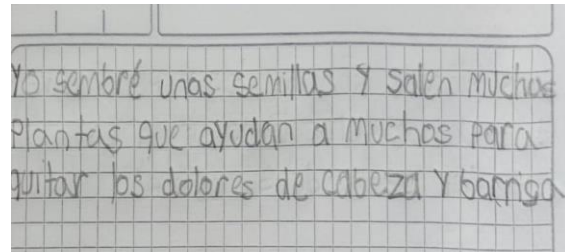 Yo sembré unas semillas y salen muchas
plantas que ayudan a muchos para
quitar los dolores de cabeza y barriga